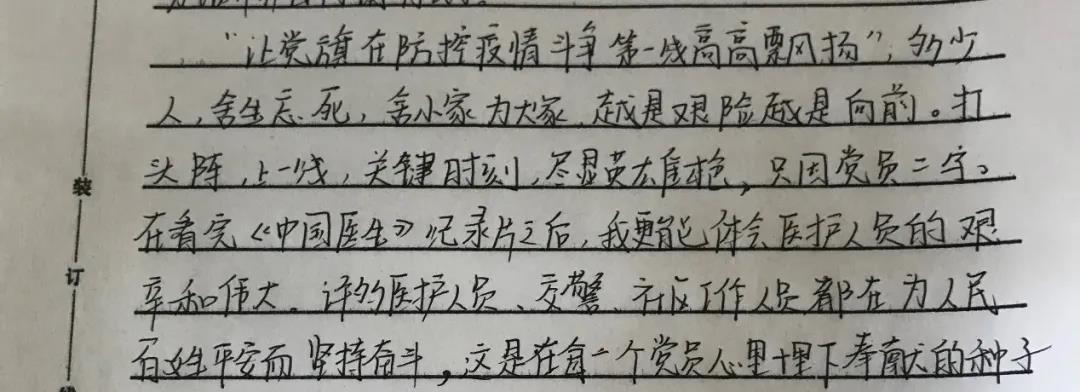 “让党旗在防控疫情斗争第一线高高飘扬”，多少
人，舍生忘死，舍小家为大家，越是艰险越是向前。打
头阵，上一线，关键时刻，尽显英雄本色，只因党员二字。
在看完《中国医生》纪录片之后，我更能体会医护人员的艰
辛和伟大。许多医护人员、交警、社区工作人员都在为人民
百姓平安而坚持奋斗，这是在每一个党员心里埋下奉献的种子
装
订